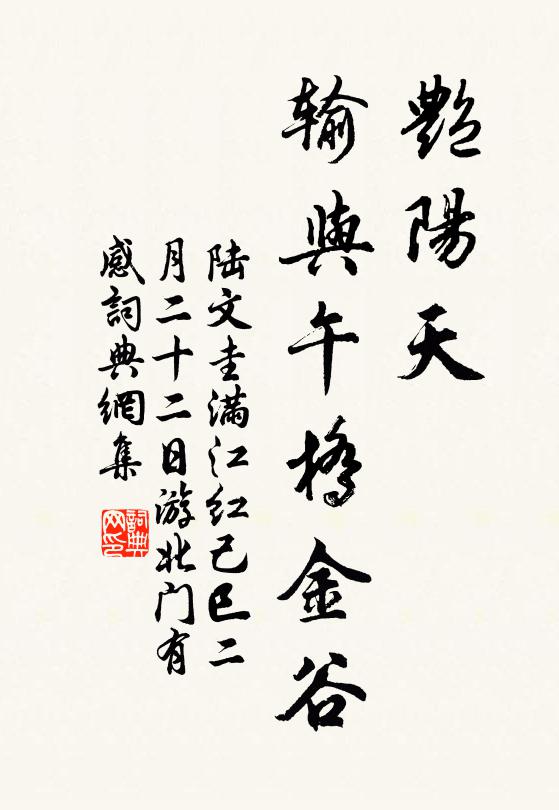 艷陽天
輸與午橋金谷
陆文圭满江红己巳二
月二十二日游北门有
感詞典網集
詞典网印